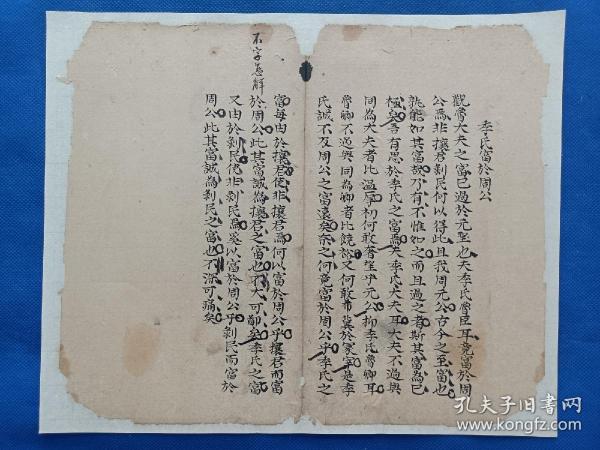 季氏富於周公
觀魯大夫之富已過於元聖也夫季氏魯臣耳竟富於周
公為非攘君剝民何以得此且我周元公古今之至富也
孰能如其富哉乃有不惟如之而且過之者斯其富為已
極矣吾有思於季氏之富焉夫季氏大夫耳大夫不過與
同為大夫者比溫厚初何敢奢望乎元公抑季氏魯卿耳
魯卿不過與同為卿者比饒裕又何敢希冀於冢宰是季
氏誠不及周公之富遠矣奈之何竟富於周公乎季氏之
不字怎解
富每由於攘君使非攘君為何以富於周公乎攘君而富
於周公此其富誠為攘君之富也大可鄙矣季氏之富
又由於剝民使非剝民為奚以富於周公乎剝民而富於
周公此其富誠為剝民之富也不深可痛矣
孔夫子旧书网
KONGFZ.COM